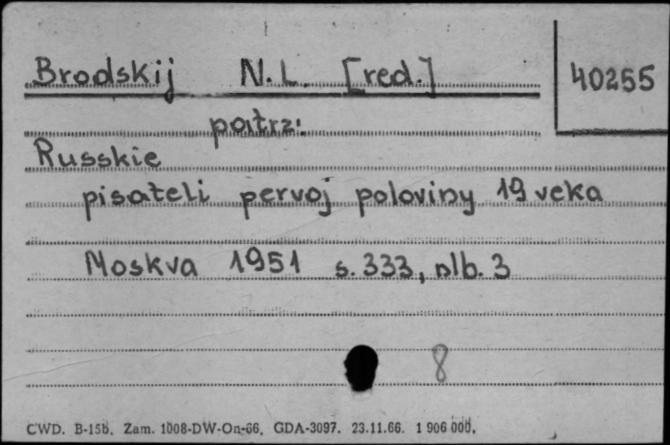 Brodskij N.L. [red.]
40255
patrz:
Russkie
pisateli pervoj poloviny 19 veka
Moskva 1951 s. 333, nlb. 3
8
CWD. B-15b. Zam. 1008-DW-On-66. GDA-3097. 23.11.66. 1 906 000.